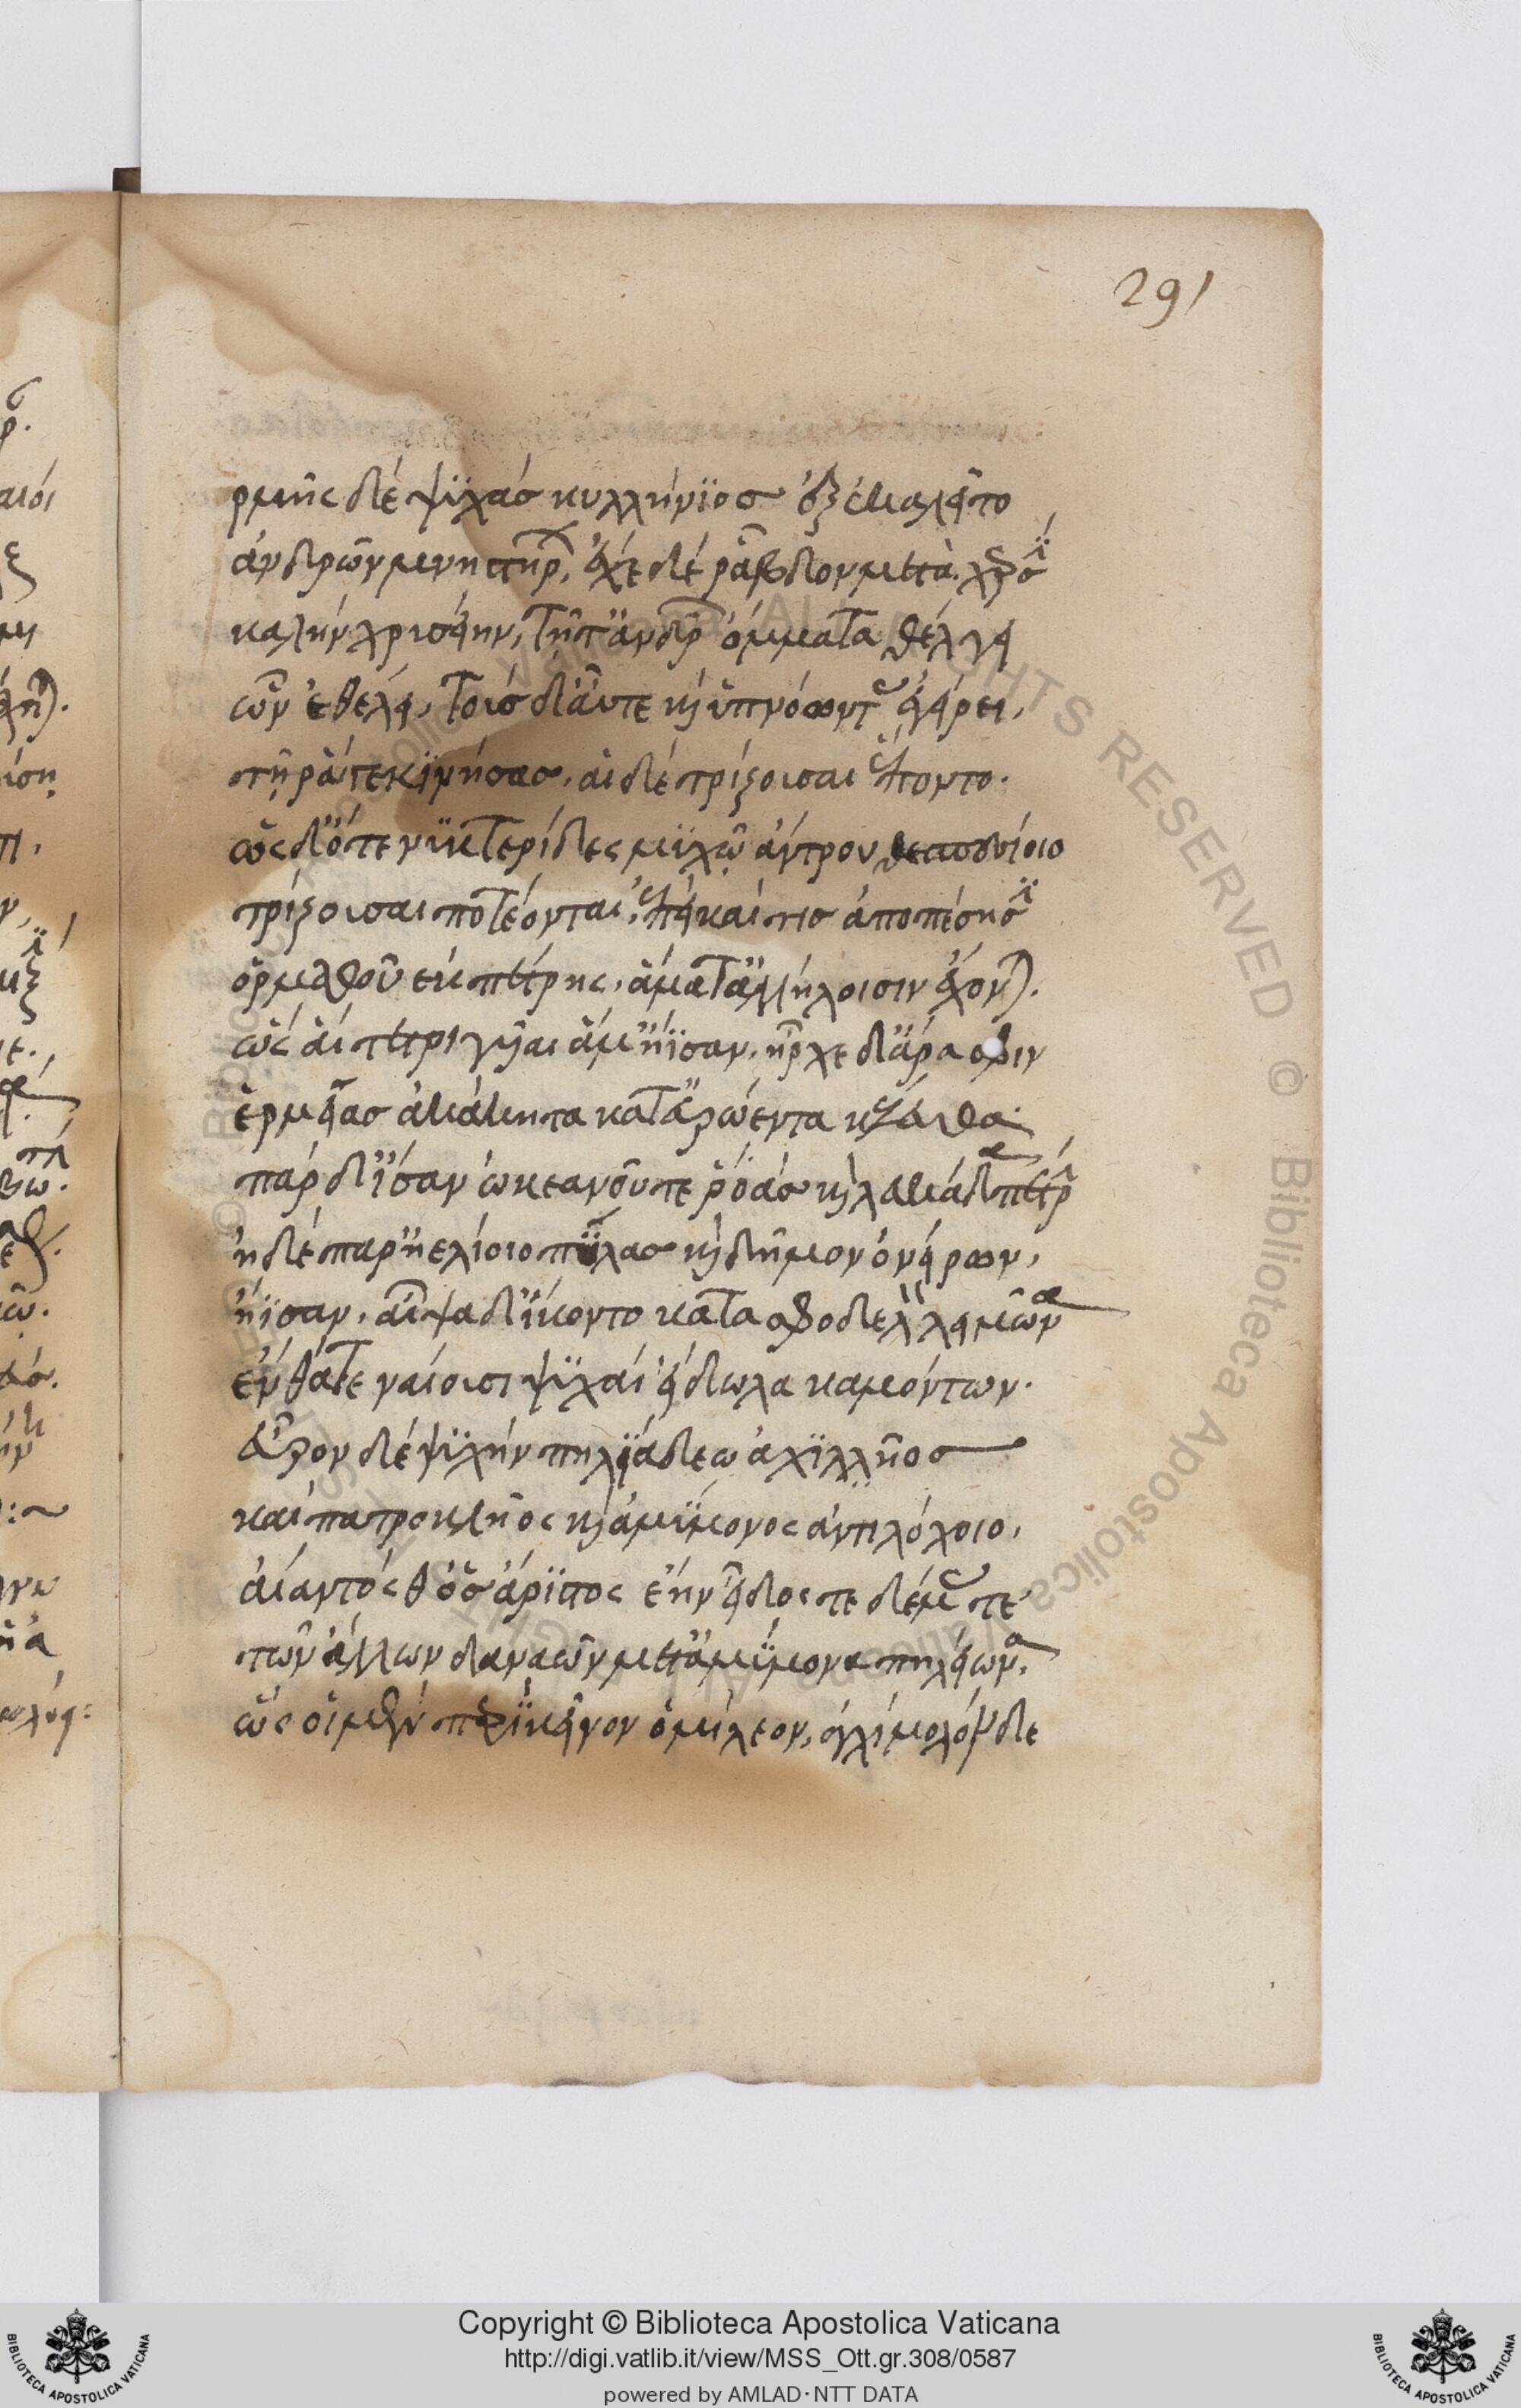 291
ρμῆς δὲ ψϋχὰσ κυλλήνϊοσ ἐξεκαλεῖτο
ἀνδρῶν μνηστήρ, ἔχε δὲ ῥάβδον μετὰ χερσὶ
καλὴν χρισείην, τῆτ' ἀνδρ ὄμματα θέλγει
ὧν ἐθέλει, τοισ δ' αὖτε κϳ ὑπνόωντ ἐγείρει,
τῇ ῥ' ἄγε κϊνήσασ, αἱ δὲ τρίζοισαι ἕποντο.
ὡς δ' ὅτε νϋκτερίδες μϋχῷ ἄντρου θεσπεσίοιο
τρίζοισαι ποτέονται, ἐπεὶ καί τισ ἀποπέσησϊ
ὁρμαθοῦ ἐκ πέτρης, ἀμα τ' ἀλλήλοισιν ἔχον).
ὡς αἱ τετριγυῖαι ἅμ' ἤϊσαν, ἦρχε δ' ἄρα σφιν
ἑρμείασ ἀκάκητα κατ' εὐρώεντα κέλευθα
πὰρ δ' ἴσαν ὠκεανοῦ τε ῥοὰσ κϳ λευκάδα πέτρ
ἠδὲ παρ' ἠελίοιο πύλασ κϳ δῆμον ὀνείρων,
ἤϊσαν, αἶψα δ' ἵκοντο κατα σφοδελὸλειμῶνα
ἔνθά τε ναίοισι ψϋχαὶ εἴδωλα καμόντων.
εὗρον δὲ ψϋχὴν πηλϊάδεω ἀχϊλλῆοσ
καὶ πατροκλῆος κϳ ἀμϋμονος ἀντιλόχοιο,
αἴαντός θ' ὃσ ἄρϊστος ἔην εἶδος τε δέμας τε
τῶν ἄλλων δαναῶν μετ' ἀμύμονα πηλείωνα,
ὡς οἱ μὲν περὶ κεῖνον ὁμίλεον, ἀγχίμολον δε
Copyright © Biblioteca Apostolica Vaticana
http://digi.vatlib.it/view/MSS_Ott.gr.308/0587
powered by AMLAD·NTT DATA